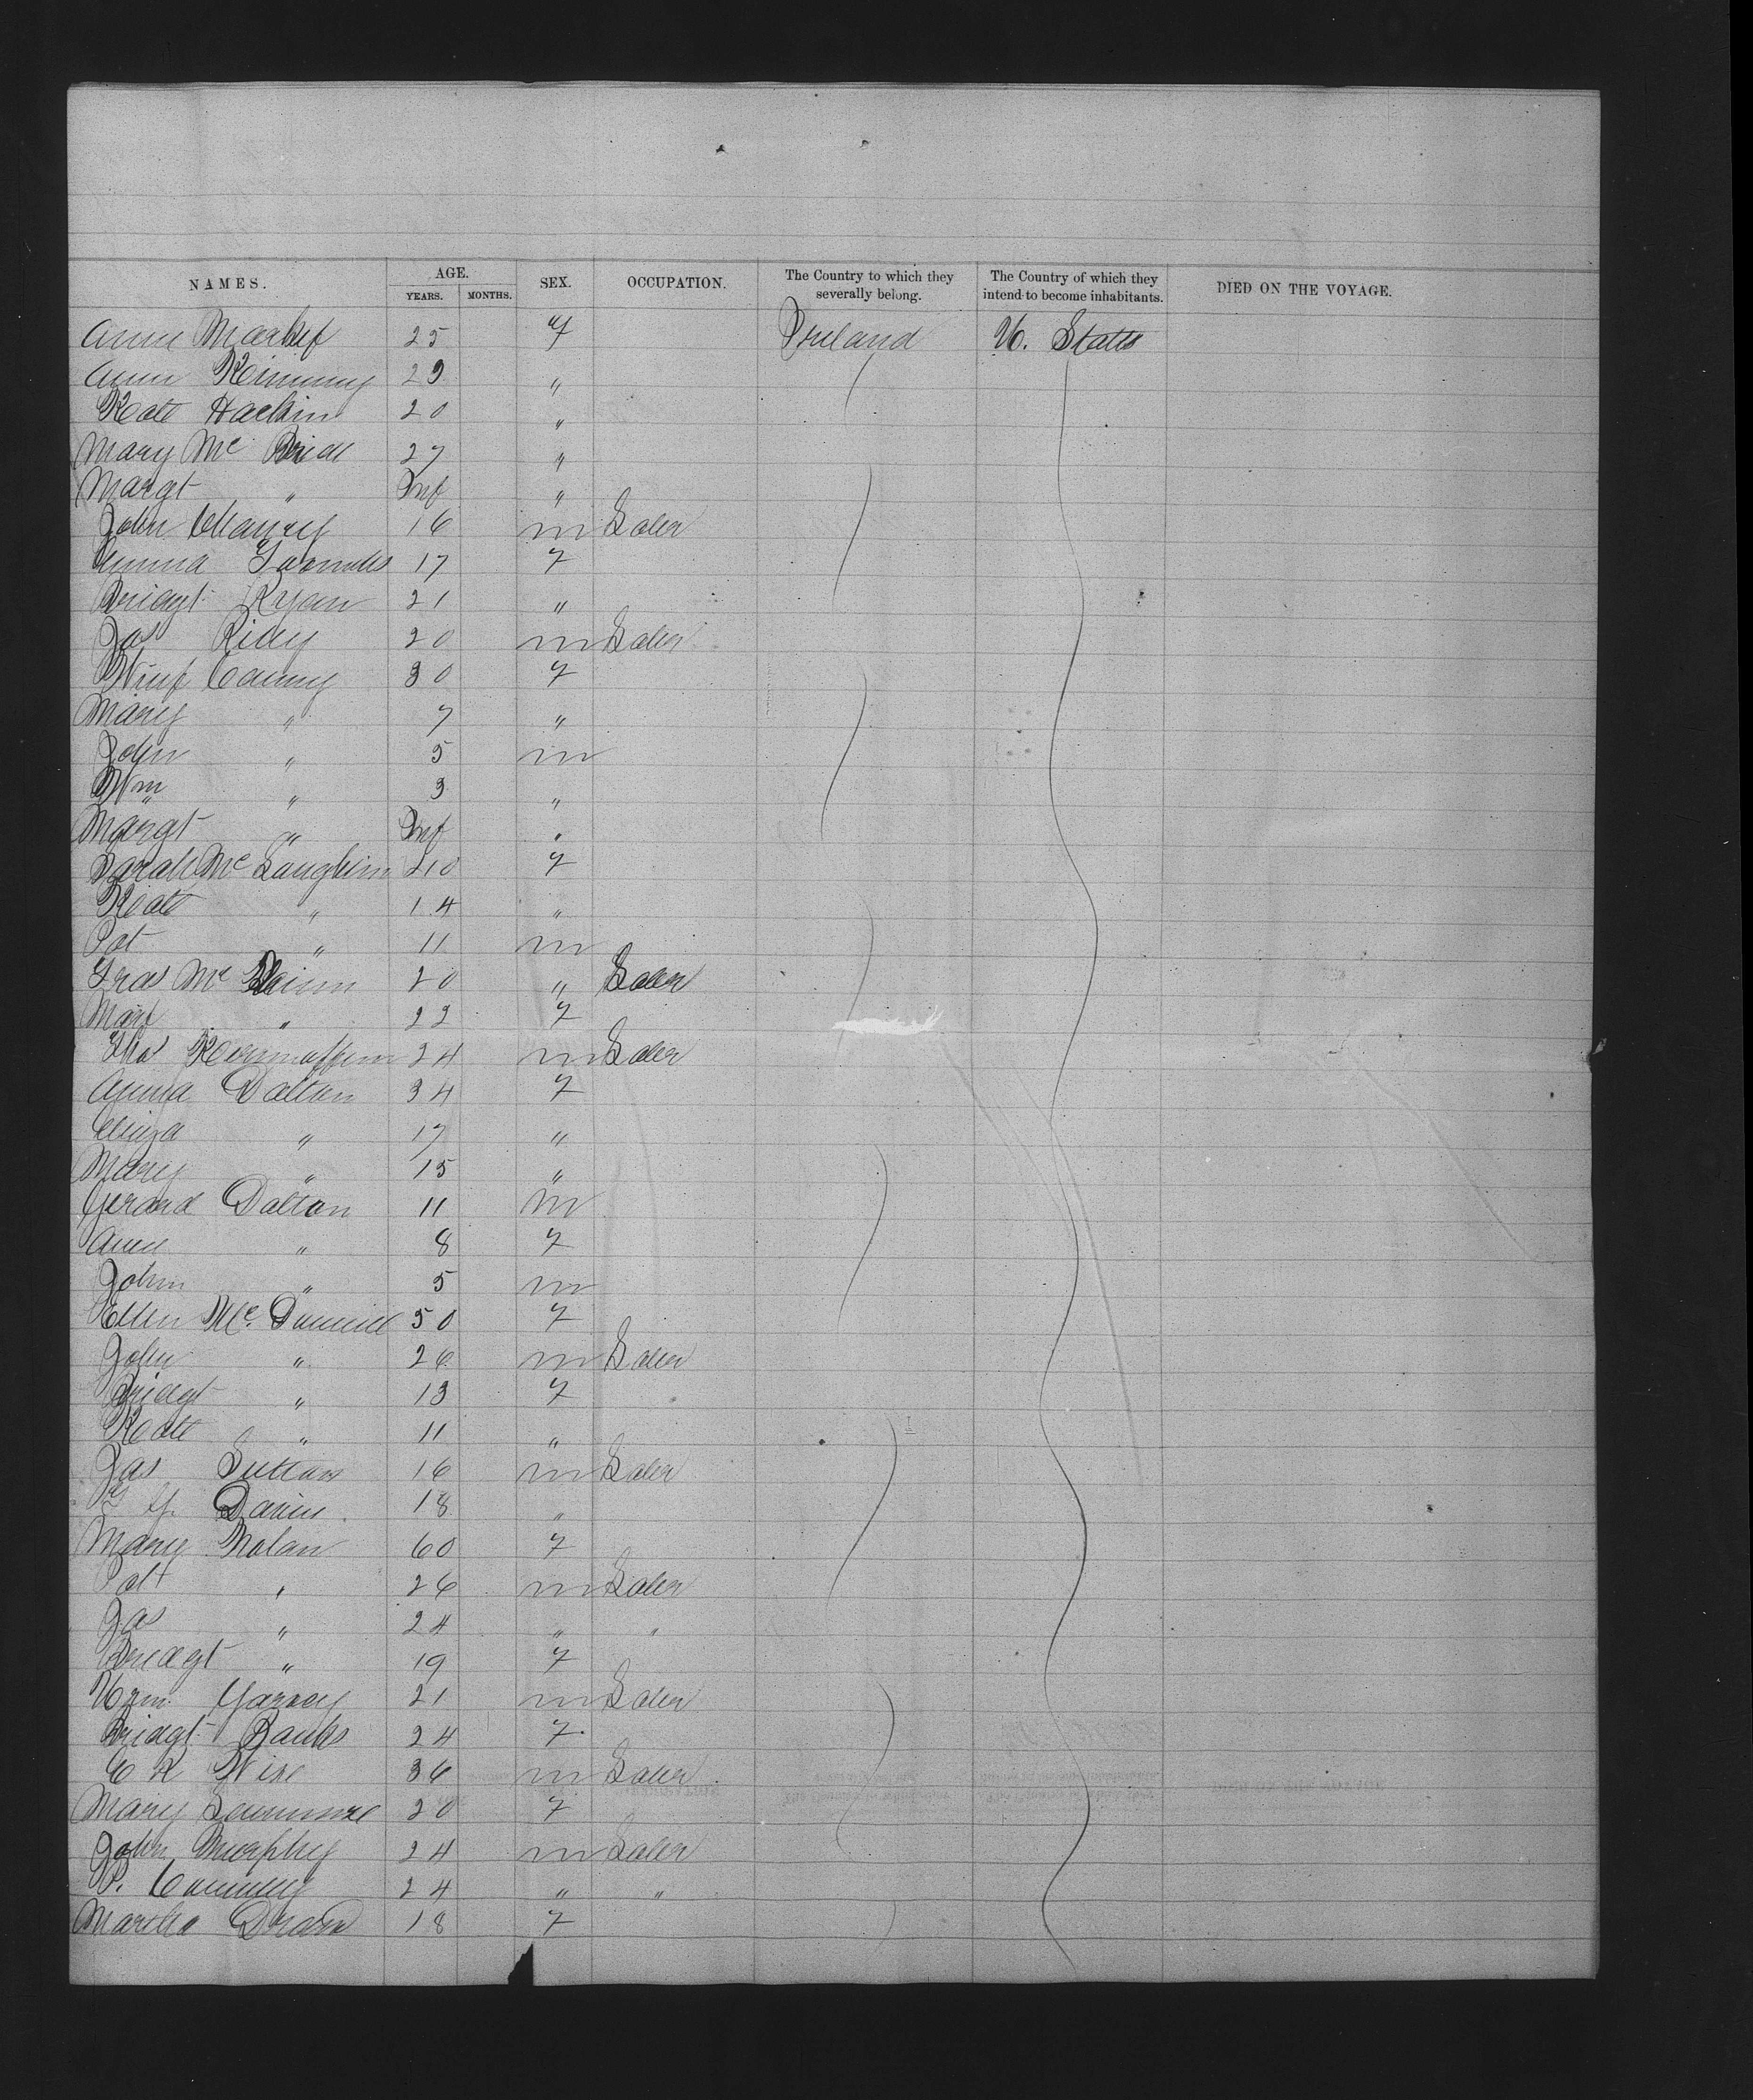 NAMES. AGE. SEX. OCCUPATION. The Country to which they severally belong. The Country of which they intend to become inhabitants. DIED ON THE VOYAGE.
YEARS. MONTHS.
Anne 25 f Ireland U. States
Ann 29 "
Kate Hackin 20 "
Mary Mc Bride 27 "
Margt " Inf "
John 16 m Laber
Emma 17 f
Bridgt Ryan 21 "
Jas 20 m Laber
Winf Canny 30 f
Mary " 7 "
John " 5 m
Wm " 3 "
Margt " Inf "
Sarah Mc Laughlin 40 f
Kate " 14 "
Pat " 11 m
Fras Mc 20 " Laber
Marg " 22 f
Thos 24 m Laber
Anna Dalton 34 f
Eliza " 17 "
Mary " 15 "
Gerard Dalton 11 m
Ann " 8 f
John " 5 m
Ellen Mc. Daniell 50 f
John " 26 m Laber
Bridgt " 13 f
Kate " 11 "
Jas Sutton 16 m Laber
18 "
Mary Nolan 60 f
Patt " 26 m Laber
Jas " 24 " "
Bridgt " 19 f
Wm. Garvey 21 m Laber
Bridgt Banks 24 f
C R Wise 36 m Laber
Mary 20 f
John Murphy 24 m Laber
P. Connelly 24 " "
Martha 18 f